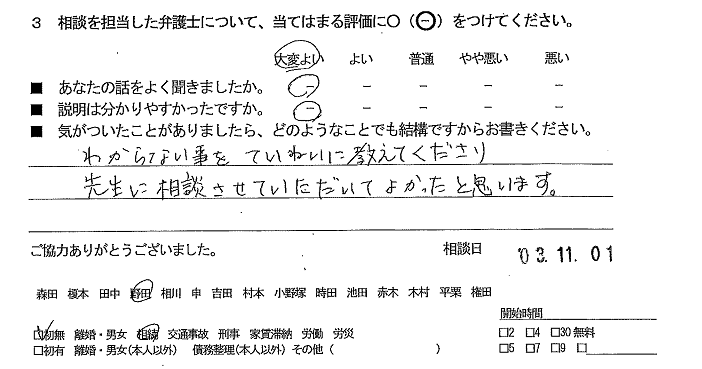 3 相談を担当した弁護士について、当てはまる評価に○（⊖）をつけてください。
大変よい よい 普通 やや悪い 悪い
■ あなたの話をよく聞きましたか。 − − − − −
■ 説明は分かりやすかったですか。 − − − − −
■ 気がついたことがありましたら、どのようなことでも結構ですからお書きください。
わからない事を ていねいに教えてくださり
先生に相談させていただいてよかったと思います。
ご協力ありがとうございました。 相談日 '03.11.01
森田 榎本 田中 野田 相川 申 吉田 村本 小野塚 時田 池田 赤木 木村 平栗 権田
開始時間
☑初無 離婚・男女 相続 交通事故 刑事 家賃滞納 労働 労災 □2 □4 □30 無料
□初有 離婚・男女(本人以外) 債務整理(本人以外) その他 ( ) □5 □7 □9 □